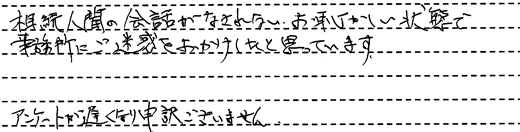 相続人間の会話がなされない、お恥ずかしい状態で
事務所にご迷惑をおかけしたと思っています。
アンケートが遅くなり申訳ございません。